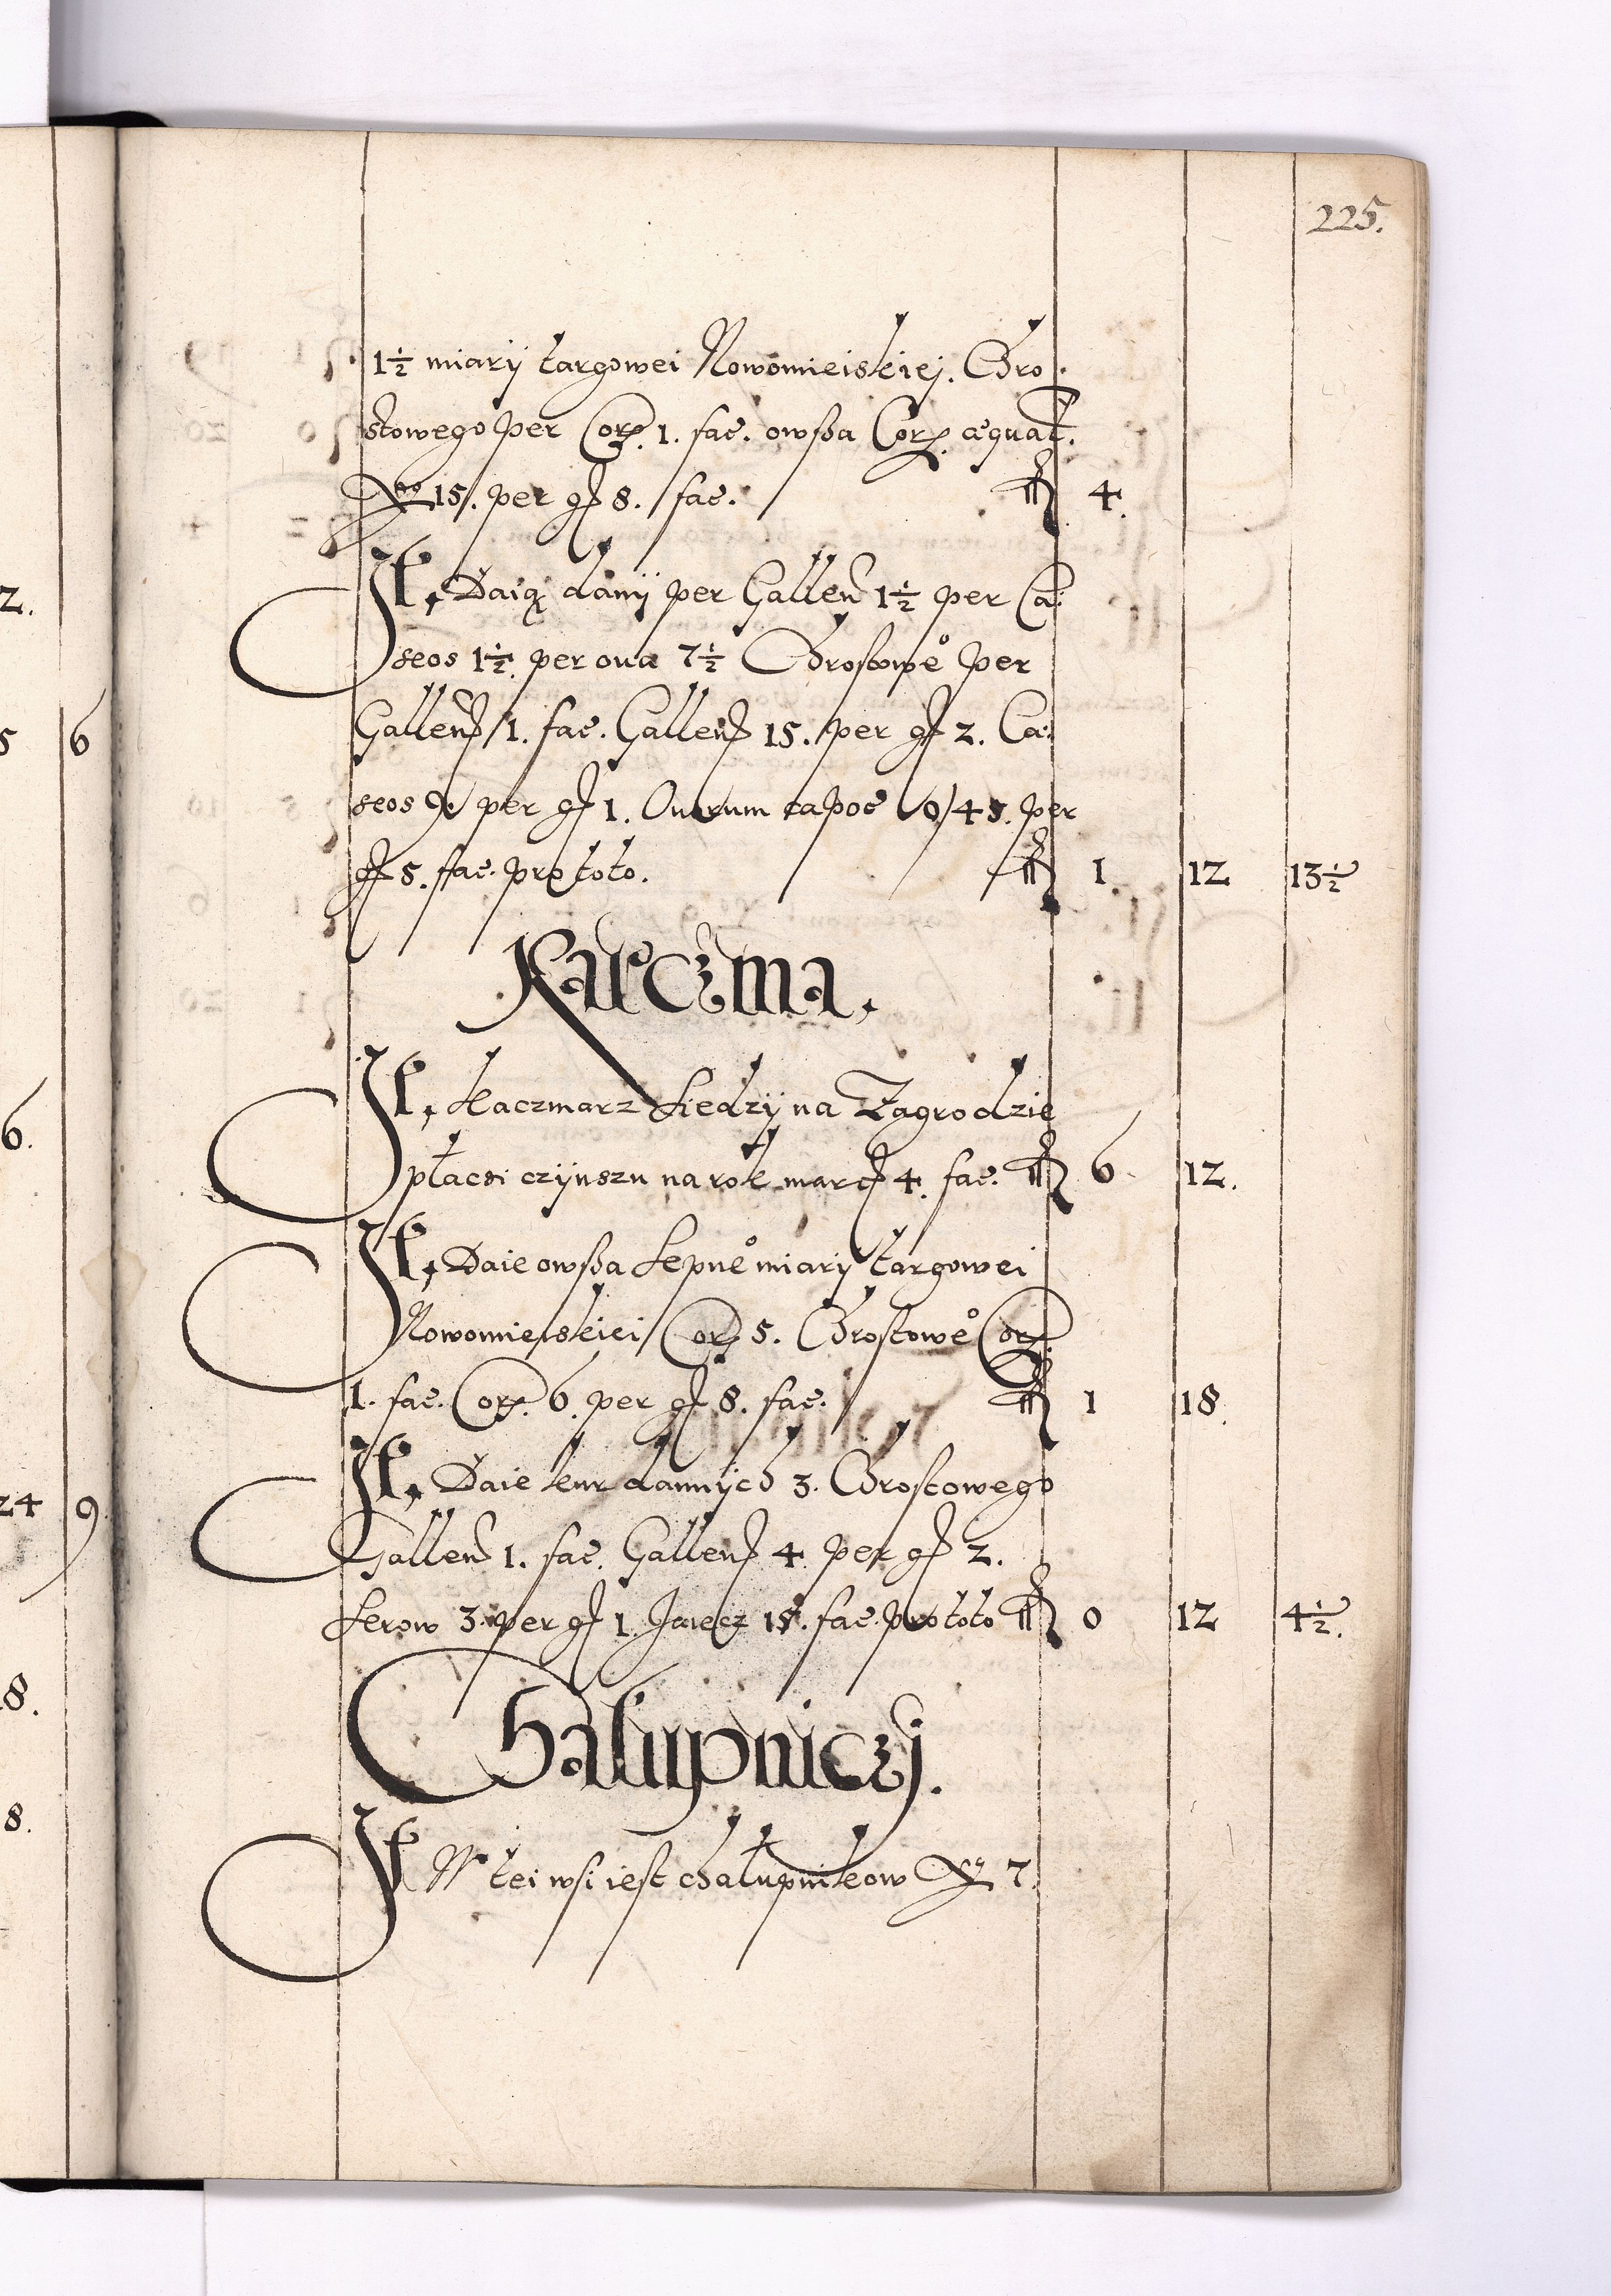 225.
1½ miarÿ targowei Nowomieiskieÿ. Chro
stowego per Cor. 1. fac. owßa Cor. æquat.
Nro 15. per gr 8. fac. fl 4.
It, Daią danÿ per Gallen 1½ per Ca:
seos 1½. per oua 7½ Chrostowe per
Gallen 1. fac. Gallen 15. per gr 2. Ca:
seos per gr 1. Ouorum capoe 0/45. per
gr 5. fac. pro toto. fl 1. 12 13½
Karczma,
It, Kaczmarz siedzÿ na Zagrodzie
płaczi czÿnszu na rok marc 4. fac. fl 6 12.
It, Daie owßa sepne miarÿ targowei
Nowomieiskiei Cor 5. Chrostowe Cor
1. fac. Cor. 6. per gr 8. fac. fl 1 18.
It, Daie kur dannÿch 3. Chrostowego
Gallen 1. fac. Gallen 4. per gr 2.
Serow 3. per gr 1. Jaiecz 15. fac. pro toto fl 0 12 4½.
Chałupniczÿ.
It W tei wsi iest chałupnikow Nr 7.
2.
5 6
6.
24 9.
8.
8.